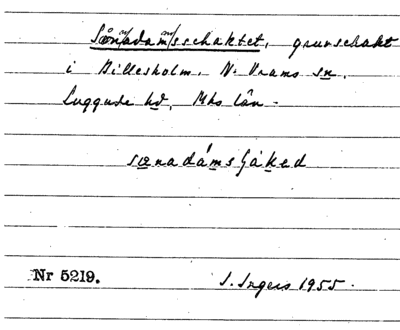 Sönadamsschaktet, gruvschakt
i Billesholm. N. Vrams sn.
Luggude hd, Mhs län.
sœnadámsʃáked
Nr 5219.
I. Ingers 1955.